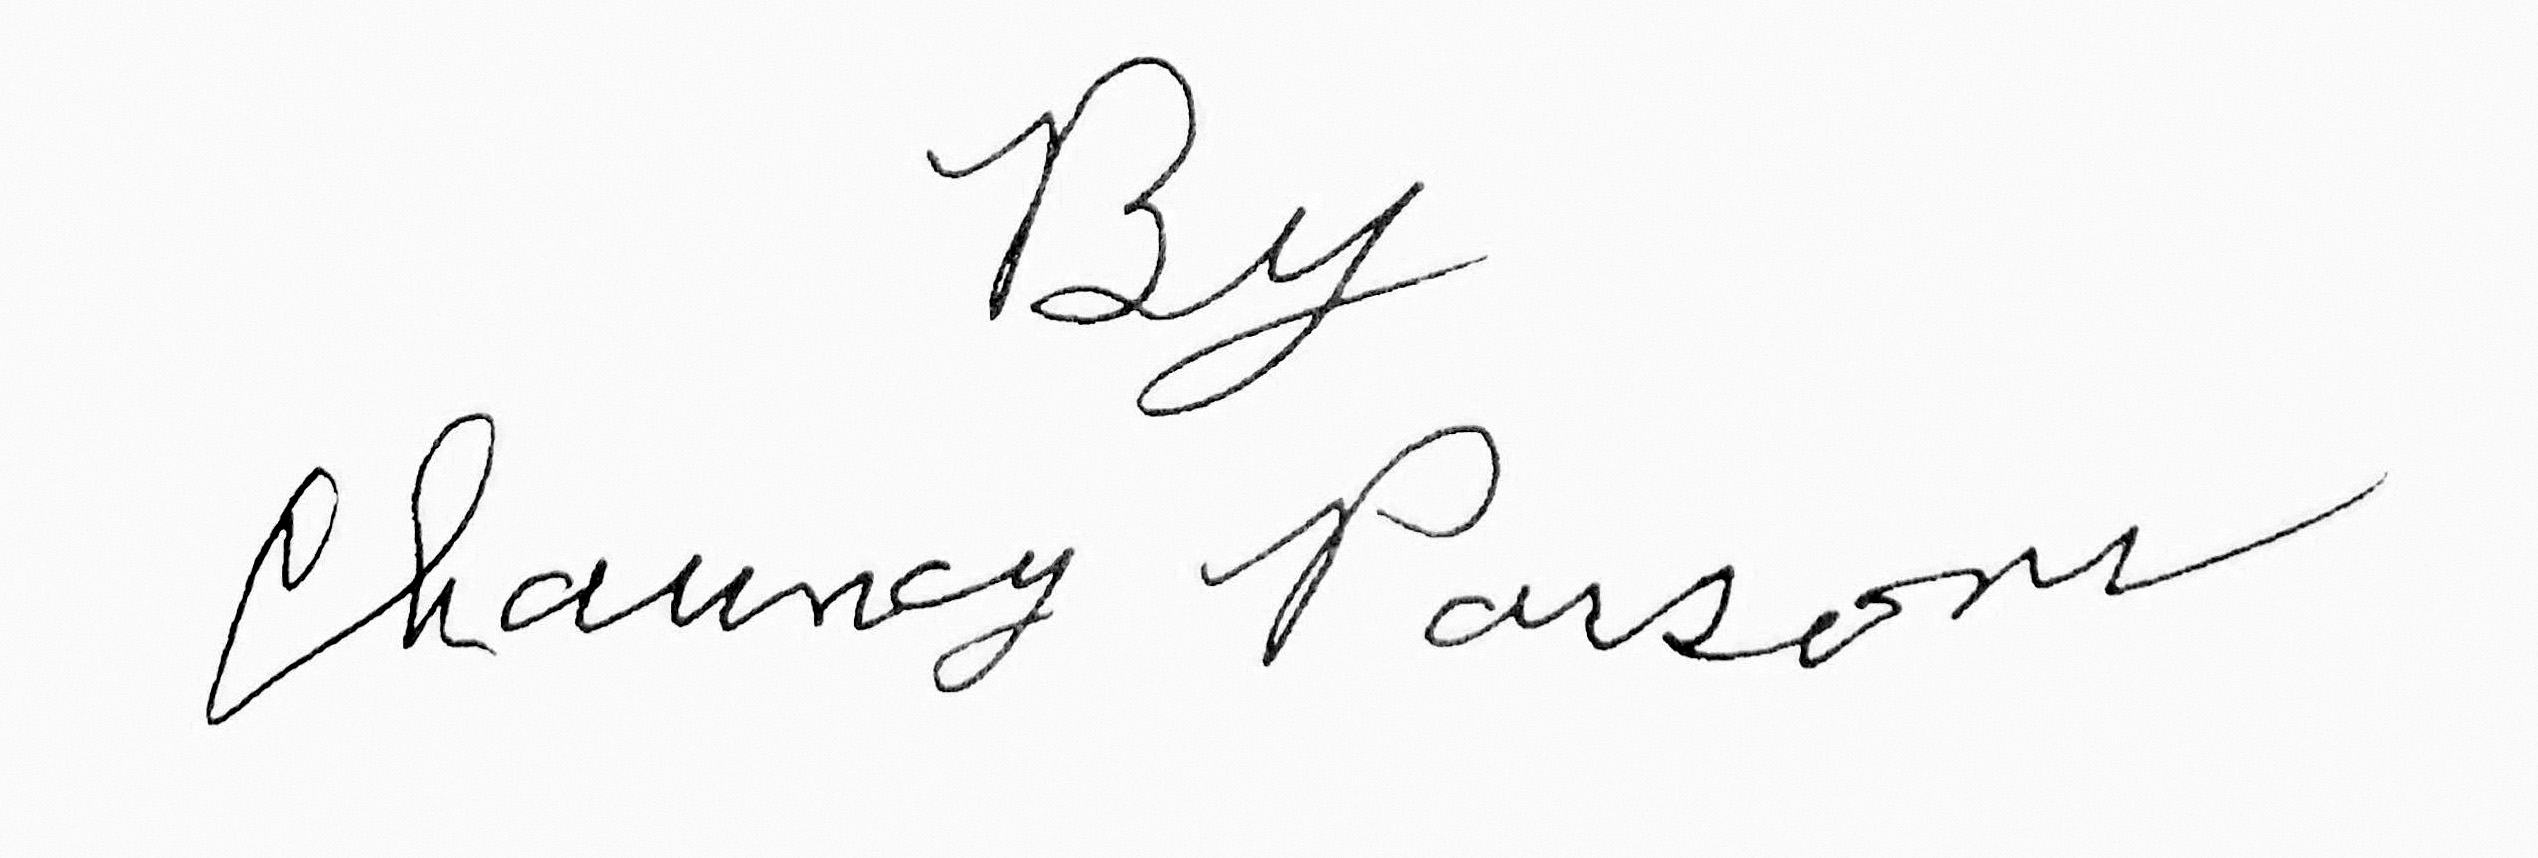 By
Chauncy Parsons